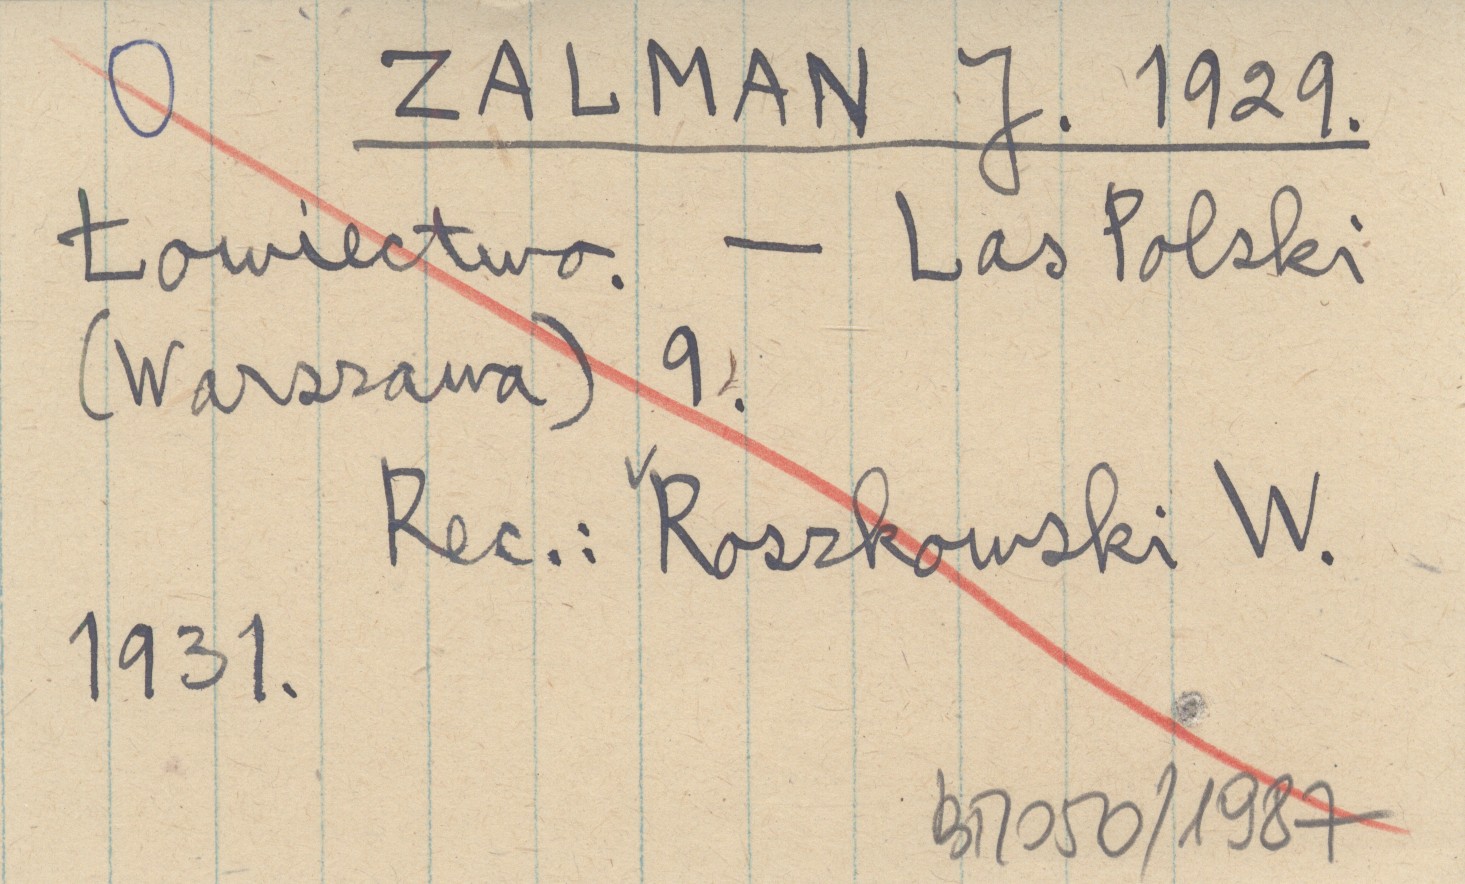 ZALMAN J. 1929.
Łowiectwo. — Las Polski
(Warszawa) 9.
Rec.: Roszkowski W.
1931.
/1987